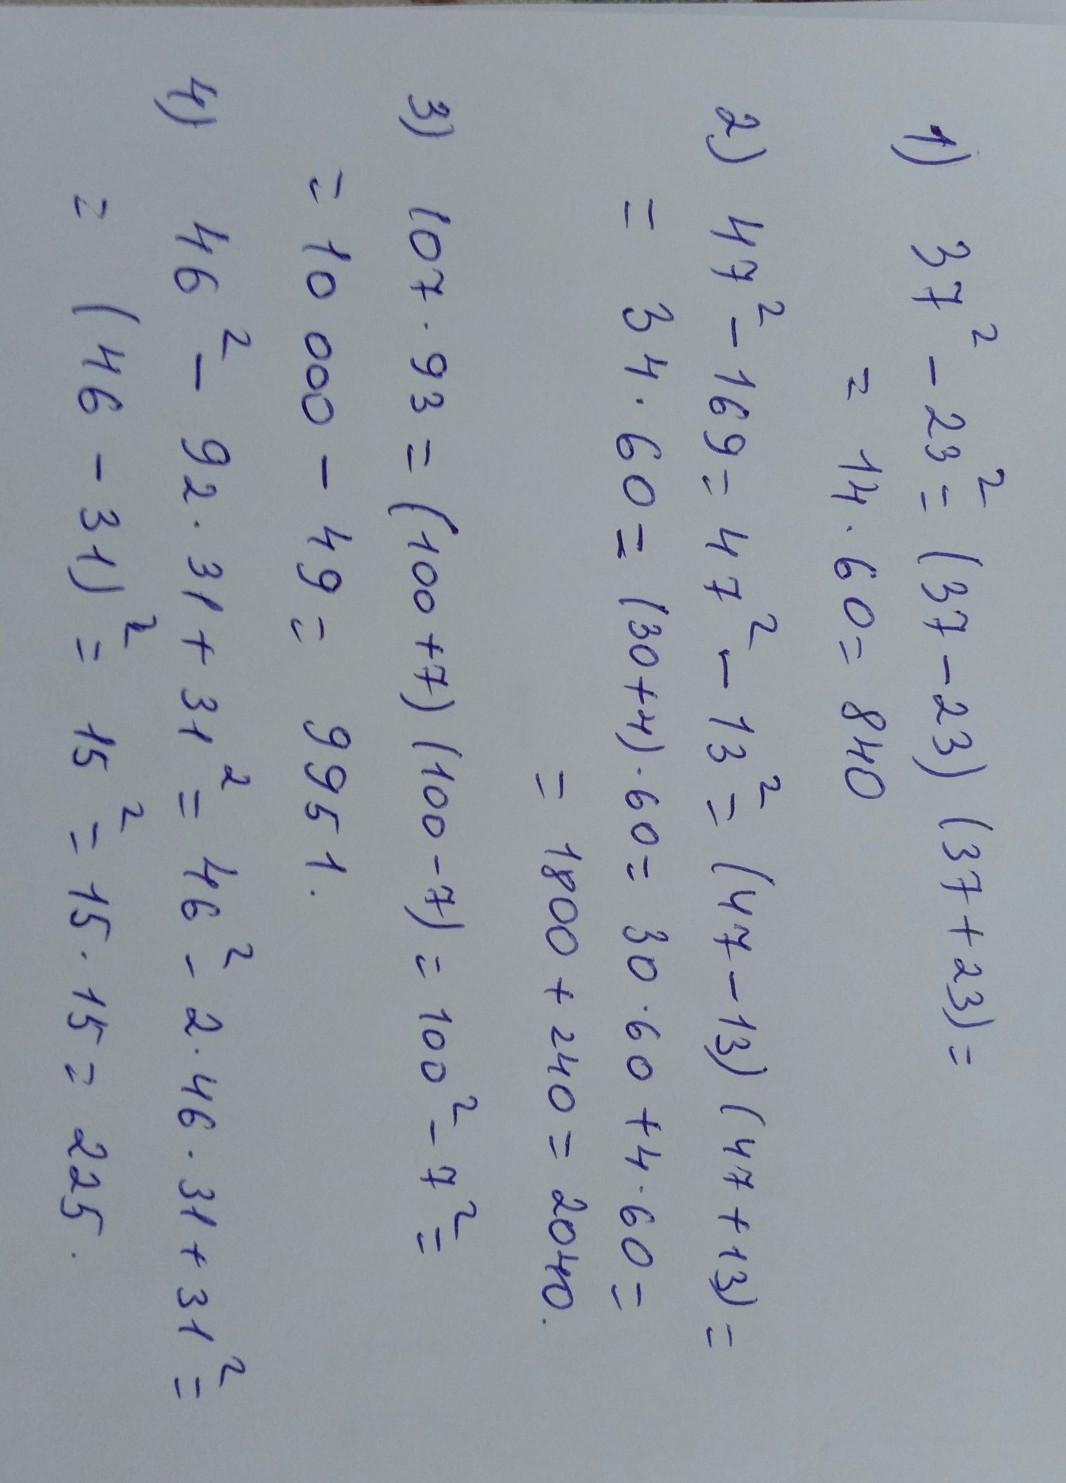 1) 37² - 23² = (37 - 23) (37 + 23) =
= 14 · 60 = 840
2) 47² - 169 = 47² - 13² = (47 - 13) (47 + 13) =
= 34 · 60 = (30 + 4) · 60 = 30 · 60 + 4 · 60 =
= 1800 + 240 = 2040.
3) 107 · 93 = (100 + 7) (100 - 7) = 100² - 7² =
= 10 000 - 49 = 9951.
4) 46² - 92 · 31 + 31² = 46² - 2 · 46 · 31 + 31² =
= (46 - 31)² = 15² = 15 · 15 = 225.